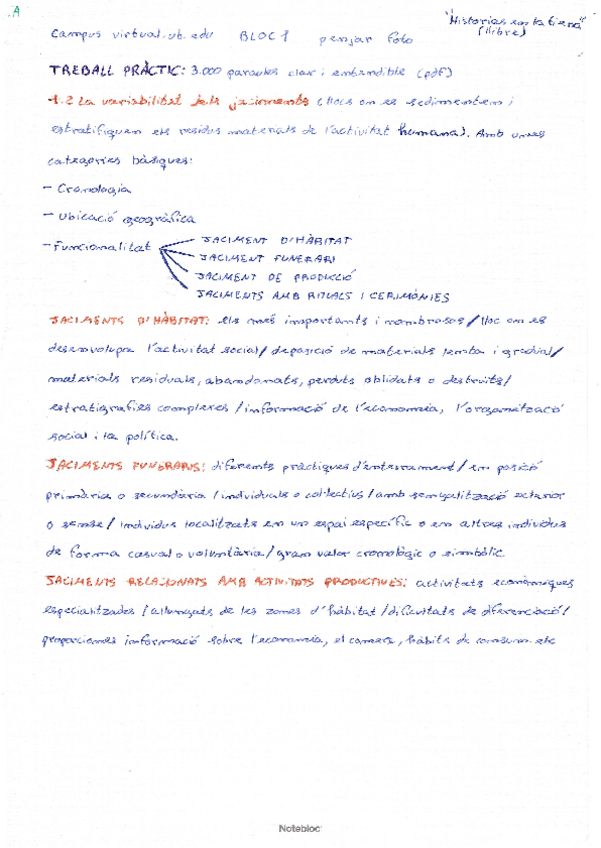 .A
"Historias en la tierra"
(llibre)
Campus virtual.ub.edu BLOC 1 penjar foto
TREBALL PRÀCTIC: 3.000 paraules clar i entendible (pdf)
1.2 La variabilitat dels jaciments (llocs on es sedimenten i
estratifiquen els residus materials de l'activitat humana). Amb unes
categories bàsiques:
- Cronologia
- Ubicació geogràfica
- Funcionalitat
JACIMENT D'HÀBITAT
JACIMENT FUNERARI
JACIMENT DE PRODUCCIÓ
JACIMENTS AMB RITUALS I CERIMÒNIES
JACIMENTS D'HÀBITAT: els més importants i nombrosos / lloc on es
desenvolupa l'activitat social / deposició de materials lenta i gradual /
materials residuals, abandonats, perduts oblidats o destruïts /
estratigrafies complexes / informació de l'economia, l'organització
social i la política.
JACIMENTS FUNERARIS: diferents pràctiques d'enterrament / en posició
primària o secundària / individuals o col·lectius / amb senyalització exterior
o sense / individus localitzats en un espai específic o en altres individus
de forma casual o voluntària / gran valor cronològic o simbòlic
JACIMENTS RELACIONATS AMB ACTIVITATS PRODUCTIVES: activitats econòmiques
especialitzades / allunyats de les zones d'hàbitat / dificultats de diferenciació /
proporcionen informació sobre l'economia, el comerç, hàbits de consum. etc
Notebloc